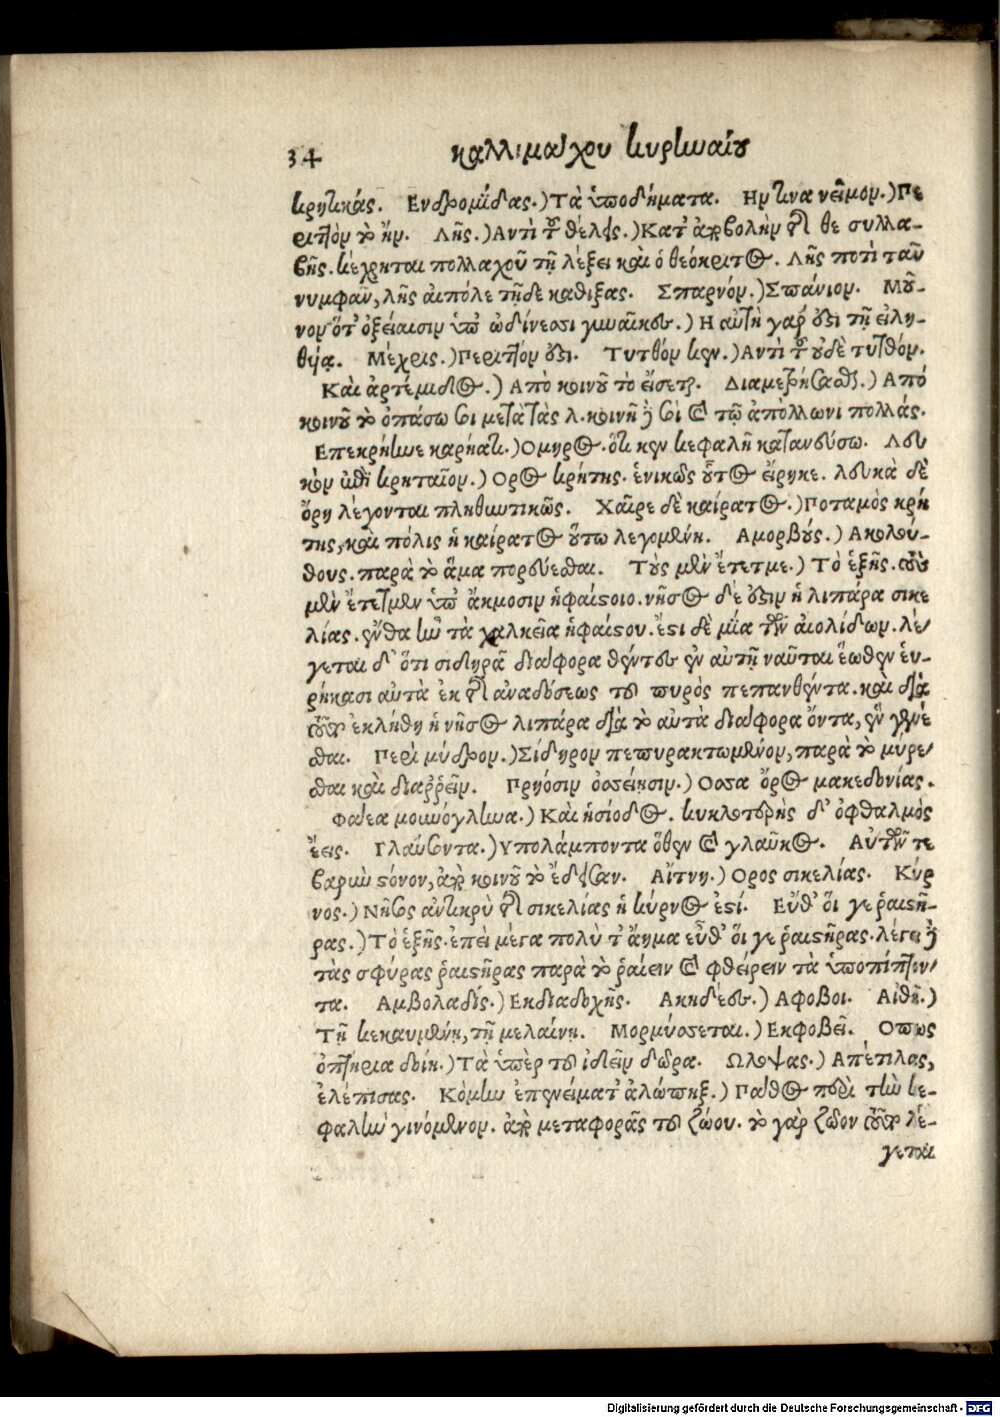 34 καλλιμάχου κυρηναίου
κρητικάς. Ενδρομίδας.) Τὰ ὑποδήματα. Ην τινα νεῖμον.) Πε
ριττὸν τὸ ἤν. Λῇς.) Αντὶ τοῦ θέλεις.) Κατ' ἀποβολὴν τῆς θε συλλα-
βῆς. κέχρηται πολλαχοῦ τῇ λέξει καὶ ὁ θεόκριτος. Λῇς ποτὶ τᾶν
νυμφᾶν, λῇς αἰπόλε τῇδε καθίξας. Σπαρνόν.) Σπάνιον. Μοῦ-
νον ὅτ' ὀξείαισιν ὑπ' ὠδίνεσσι γυναῖκες.) Η αὐτὴ γάρ ἐστι τῇ εἰλη-
θυίᾳ. Μέχρις.) Περιττόν ἐστι. Τυτθόν κεν.) Αντὶ τοῦ οὐδὲ τυτθόν.
Καὶ ἀρτέμιδος.) Απὸ κοινοῦ τὸ εἴσεται. Διαμετρήσασθαι.) Από
κοινοῦ τὸ ὀπάσω σοι μετὰ τὰς λ. κοινῇ δὲ σὺ καὶ τῷ ἀπόλλωνι πολλάς.
Επεκρήηνε καρήατι.) Ομηρος. ὅτι κεν κεφαλῇ κατανεύσω. Λευ
κὸν ἐπὶ κρηταῖον.) Ορος κρήτης. ἑνικῶς οὗτος εἴρηκε. λευκὰ δὲ
ὄρη λέγονται πληθυντικῶς. Χαῖρε δὲ καίρατος.) Ποταμὸς κρή
της, καὶ πόλις ἡ καίρατος οὕτω λεγομένη. Αμορβούς.) Ακολού-
θους. παρὰ τὸ ἅμα πορεύεσθαι. Τοὺς μὲν ἔτετμε.) Τὸ ἑξῆς. τοὺς
μὲν ἔτετμεν ὑπ' ἄκμοσιν ἡφαίστοιο. νῆσος δέ ἐστιν ἡ λιπάρα σικε
λίας. ἔνθα ἦν τὰ χαλκεῖα ἡφαίστου. ἔστι δὲ μία τῶν αἰολίδων. λέ-
γεται δ' ὅτι σιδηρᾶ διάφορα θέντες ἐν αὐτῇ ναῦται ἕωθεν εὑ-
ρήκασι αὐτὰ ἐκ τῆς ἀναδόσεως τοῦ πυρὸς πεπανθέντα. καὶ διὰ
τοῦτο ἐκλήθη ἡ νῆσος λιπάρα διὰ τὸ αὐτὰ διάφορα ὄντα, ἓν γενέ
σθαι. Περὶ μύδρον.) Σίδηρον πεπυρακτωμένον, παρὰ τὸ μύρε-
σθαι καὶ διαῤῥεῖν. Πρηόσιν ὀσσείησιν.) Οσσα ὄρος μακεδονίας.
Φάεα μουνόγληνα.) Καὶ ἡσίοδος. κυκλοτερὴς δ' ὀφθαλμὸς
ἕεις. Γλαύσοντα.) Υπολάμποντα ὅθεν καὶ γλαῦκος. Αὐτῶν τε
βαρὺν στόνον, ἀπὸ κοινοῦ τὸ ἔδεισαν. Αἴτνη.) Ορος σικελίας. Κύρ
νος.) Νῆσος ἀντικρὺ τῆς σικελίας ἡ κύρνος ἐστί. Εὖθ' ὅι γε ῥαιστῆ-
ρας.) Τὸ ἑξῆς. ἐπεὶ μέγα πολὺ τ' ἄημα εὖθ' ὅι γε ῥαιστῆρας. λέγει δὲ
τὰς σφύρας ῥαιστῆρας παρὰ τὸ ῥαίειν καὶ φθείρειν τὰ ὑποπίπτον-
τα. Αμβολαδίς.) Εκδιαδοχῆς. Ακηδέες.) Αφοβοι. Αἰθῇ.)
Τῇ κεκαυμένῃ, τῇ μελαίνῃ. Μορμύσσεται.) Εκφοβεῖ. Οπως
ὀπτήρια δοίη.) Τὰ ὑπὲρ τοῦ ἰδεῖν δῶρα. Ωλοψας.) Απέτιλας,
ἐλέπισας. Κόμην ἐπενείματ' ἀλώπηξ.) Πάθος περὶ τὴν κε-
φαλὴν γινόμενον. ἀπὸ μεταφορᾶς τοῦ ζώου. τὸ γὰρ ζῶον τοῦτο λέ-
γεται
Digitalisierung gefördert durch die Deutsche Forschungsgemeinschaft - DFG